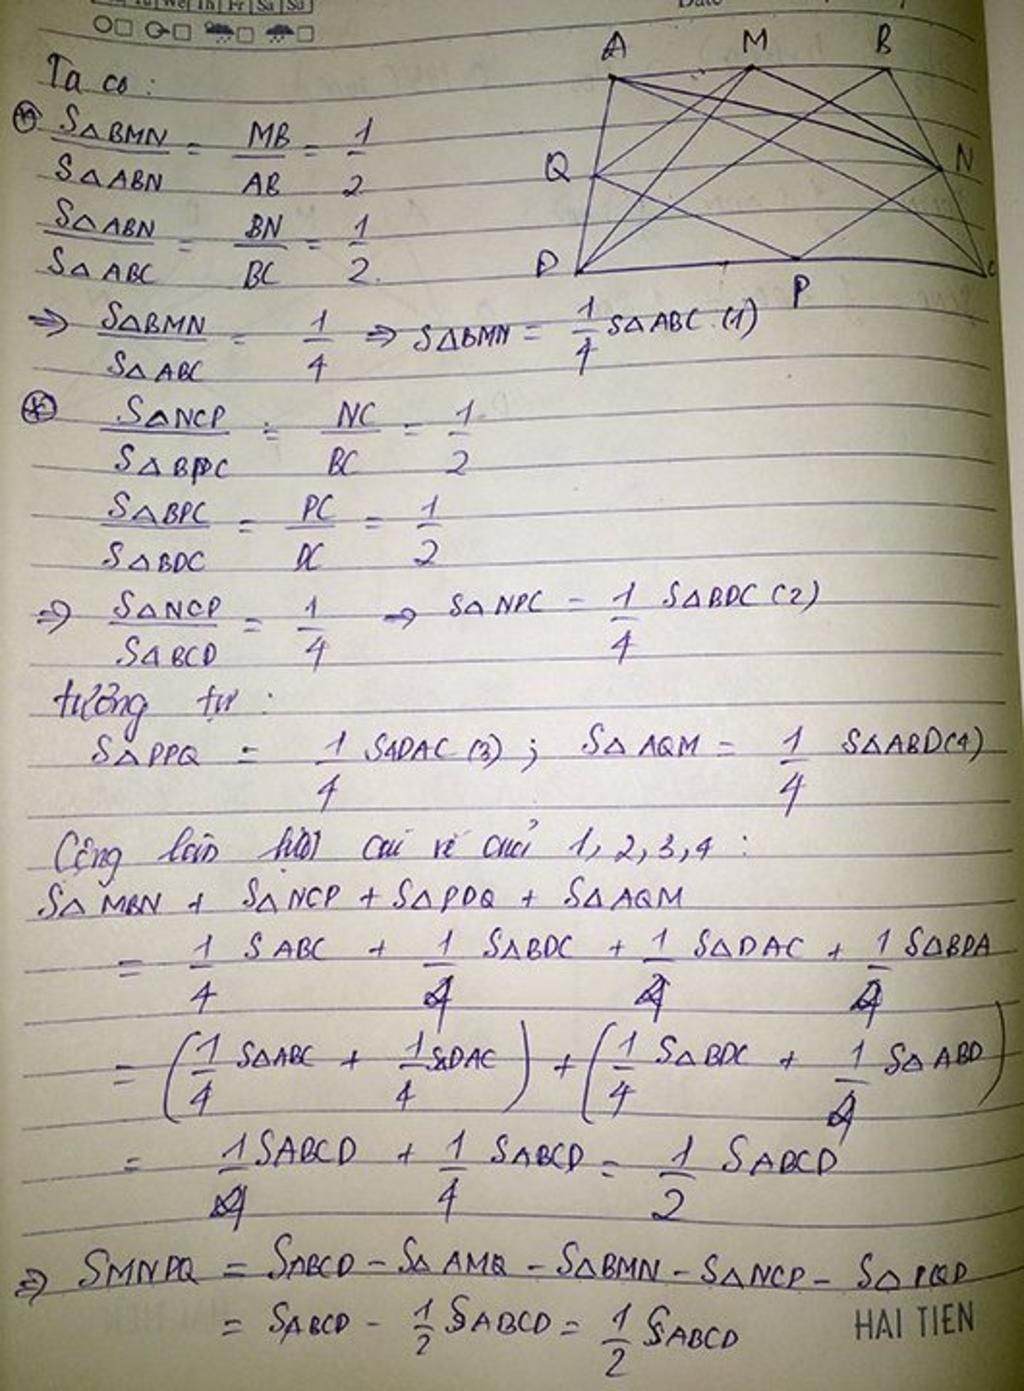 We Th Fr Sa Su
Date
Ta có:
A M B
Q N
D P C
* S△BMN / S△ABN = MB / AB = 1/2
S△ABN / S△ABC = BN / BC = 1/2.
=> S△BMN / S△ABC = 1/4 => S△BMN = 1/4 S△ABC (1)
* S△NCP / S△BPC = NC / BC = 1/2
S△BPC / S△BDC = PC / DC = 1/2
=> S△NCP / S△BCD = 1/4 => S△NPC = 1/4 S△BDC (2)
tương tự:
S△PPQ = 1/4 S△DAC (3); S△AQM = 1/4 S△ABD (4)
Cộng lần lượt các vế của 1, 2, 3, 4:
S△MBN + S△NCP + S△PDQ + S△AQM
= 1/4 SABC + 1/4 S△BDC + 1/4 S△DAC + 1/4 S△BDA
= (1/4 S△ABC + 1/4 S△DAC) + (1/4 S△BDC + 1/4 S△ABD)
= 1/4 SABCD + 1/4 SABCD = 1/2 SABCD
=> SMNPQ = SABCD - S△AMQ - S△BMN - S△NCP - S△PQD
= SABCD - 1/2 SABCD = 1/2 SABCD
HAI TIEN